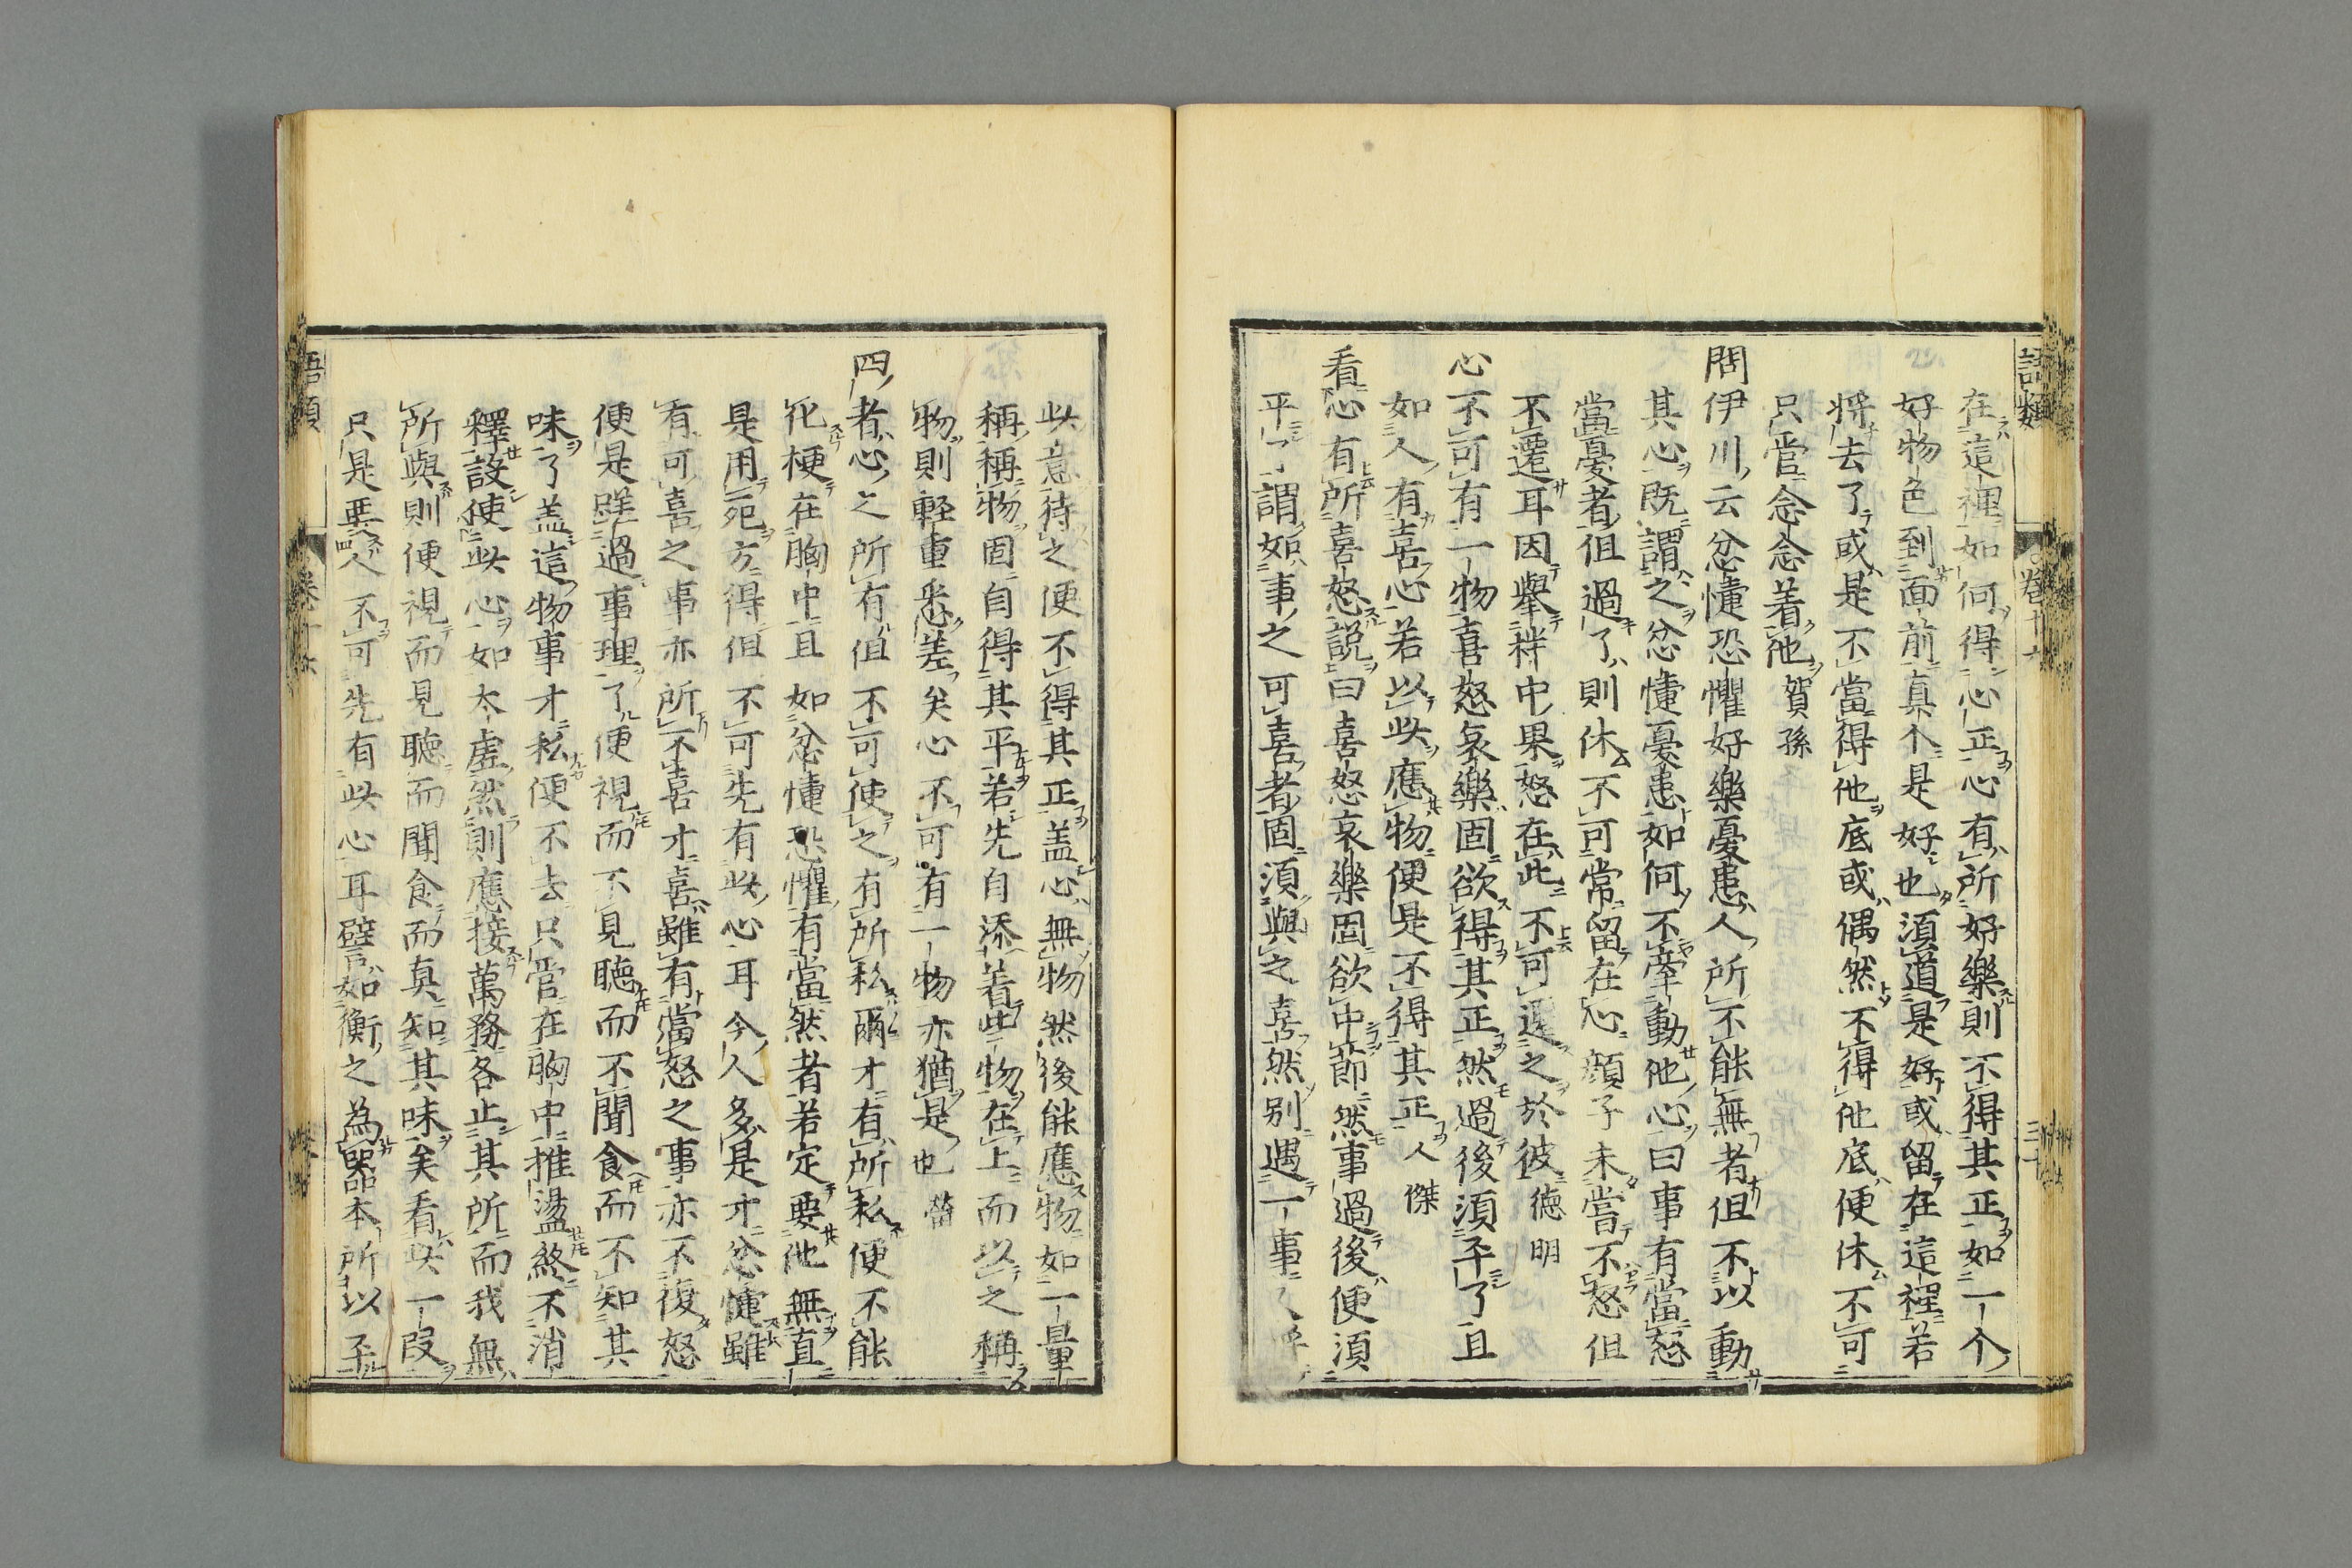 語類
卷十六
三十
在這裡如何得心正心有所好樂則不得其正如一个
好物色到面前真个是好也須道是好或留在這裡若
將去了或是不當得他底或偶然不得他底便休不可
只管念念着他賀孫
問伊川云忿懥恐懼好樂憂患人所不能無者但不以動
其心既謂之忿懥憂患如何不牽動他心曰事有當怒
當憂者但過了則休不可常留在心顔子未嘗不怒但
不遷耳因擧𬂩中果怒在此不可遷之於彼德明
心不可有一物喜怒哀樂固欲得其正然過後須平了且
如人有喜心若以此應物便是不得其正人傑
看心有所喜怒説曰喜怒哀樂固欲中節然事過後便須
平了謂如事之可喜者固須與之喜然别遇一事
此意待之便不得其正盖心無物然後能應物如一量
稱稱物固自得其平若先自添着些物在上而以之稱
物則軽重悉差矣心不可有一物亦猶是也㽦
四者心之所有但不可使之有所私爾才有所私便不能
化梗在胸中且如忿懥恐懼有當然者若定要他無直
是用死方得但不可先有此心耳今人多是才忿懥雖
有可喜之事亦所不喜才喜雖有當怒之事亦不復怒
便是蹉過事理了便視而不見聽而不聞食而不知其
味了盖這物事才私便不去只管在胸中推盪煞不消
釋設使此心如太虚然則應接萬務各止其所而我無
所與則便視而見聽而聞食而真知其味矣看此一段
只是要人不可先有此心耳譬如衡之為器本所以平
語類
卷十六